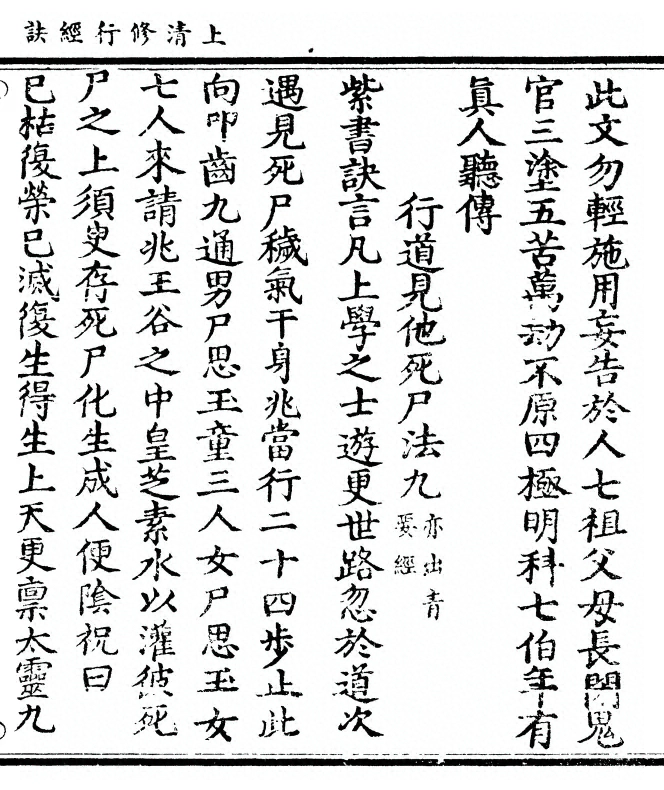 上清修行經訣
此文勿輕施用妄告於人七祖父母長閉鬼
官三塗五苦萬劫不原四極明科七伯年有
眞人聽傳
行道見他死尸法九亦出青要經
紫書訣言凡上學之士遊更世路忽於道次
遇見死尸穢氣干身兆當行二十四步止此
向叩齒九通男尸思玉童三人女尸思玉女
七人來請兆王谷之中皇芝素水以灌彼死
尸之上須臾存死尸化生成人便陰祝曰
已枯復榮已滅復生得生上天更稟太靈九